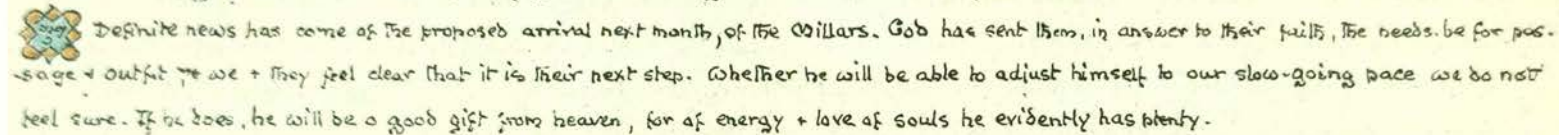 Definite news has come of the proposed arrival next month, of the Millars. God has sent them, in answer to their faith, the needs-be for pas-
-sage + outfit + we + they feel clear that it is their next step. Whether he will be able to adjust himself to our slow-going pace we do not
feel sure. If he does, he will be a good gift from heaven, for of energy + love of souls he evidently has plenty.